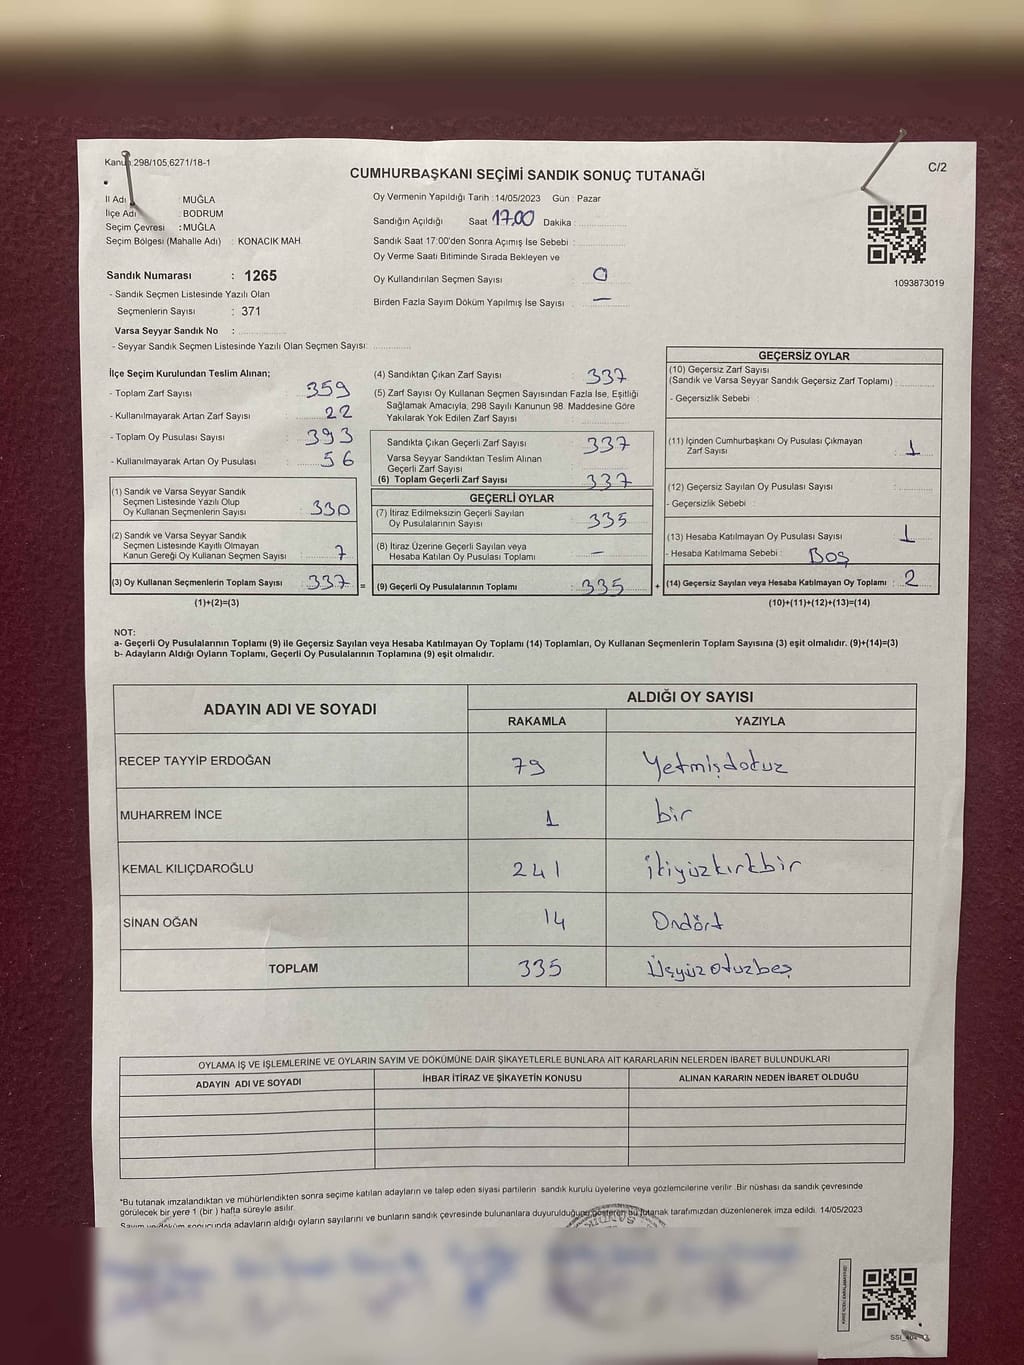 Kanun 298/105,6271/18-1
C/2
CUMHURBAŞKANI SEÇİMİ SANDIK SONUÇ TUTANAĞI
İl Adı : MUĞLA
İlçe Adı : BODRUM
Seçim Çevresi : MUĞLA
Seçim Bölgesi (Mahalle Adı) : KONACIK MAH.
Sandık Numarası : 1265
- Sandık Seçmen Listesinde Yazılı Olan
Seçmenlerin Sayısı : 371
Varsa Seyyar Sandık No :
- Seyyar Sandık Seçmen Listesinde Yazılı Olan Seçmen Sayısı:
Oy Vermenin Yapıldığı Tarih : 14/05/2023 Gün : Pazar
Sandığın Açıldığı Saat 17.00 Dakika :
Sandık Saat 17:00'den Sonra Açımış İse Sebebi :
Oy Verme Saati Bitiminde Sırada Bekleyen ve
Oy Kullandırılan Seçmen Sayısı : 0
Birden Fazla Sayım Döküm Yapılmış İse Sayısı : —
1093873019
İlçe Seçim Kurulundan Teslim Alınan;
- Toplam Zarf Sayısı : 359
- Kullanılmayarak Artan Zarf Sayısı : 22
- Toplam Oy Pusulası Sayısı : 393
- Kullanılmayarak Artan Oy Pusulası : 56
(1) Sandık ve Varsa Seyyar Sandık
Seçmen Listesinde Yazılı Olup
Oy Kullanan Seçmenlerin Sayısı : 330
(2) Sandık ve Varsa Seyyar Sandık
Seçmen Listesinde Kayıtlı Olmayan
Kanun Gereği Oy Kullanan Seçmen Sayısı : 7
(3) Oy Kullanan Seçmenlerin Toplam Sayısı : 337 =
(1)+(2)=(3)
(4) Sandıktan Çıkan Zarf Sayısı : 337
(5) Zarf Sayısı Oy Kullanan Seçmen Sayısından Fazla İse, Eşitliği
Sağlamak Amacıyla, 298 Sayılı Kanunun 98. Maddesine Göre
Yakılarak Yok Edilen Zarf Sayısı :
Sandıkta Çıkan Geçerli Zarf Sayısı : 337
Varsa Seyyar Sandıktan Teslim Alınan
Geçerli Zarf Sayısı :
(6) Toplam Geçerli Zarf Sayısı : 337
GEÇERLİ OYLAR
(7) İtiraz Edilmeksizin Geçerli Sayılan
Oy Pusulalarının Sayısı : 335
(8) İtiraz Üzerine Geçerli Sayılan veya
Hesaba Katılan Oy Pusulası Toplamı : —
(9) Geçerli Oy Pusulalarının Toplamı : 335 +
GEÇERSİZ OYLAR
(10) Geçersiz Zarf Sayısı
(Sandık ve Varsa Seyyar Sandık Geçersiz Zarf Toplamı) :
- Geçersizlik Sebebi :
(11) İçinden Cumhurbaşkanı Oy Pusulası Çıkmayan
Zarf Sayısı : 1
(12) Geçersiz Sayılan Oy Pusulası Sayısı :
- Geçersizlik Sebebi :
(13) Hesaba Katılmayan Oy Pusulası Sayısı : 1
- Hesaba Katılmama Sebebi : Boş
(14) Geçersiz Sayılan veya Hesaba Katılmayan Oy Toplamı : 2
(10)+(11)+(12)+(13)=(14)
NOT:
a- Geçerli Oy Pusulalarının Toplamı (9) ile Geçersiz Sayılan veya Hesaba Katılmayan Oy Toplamı (14) Toplamları, Oy Kullanan Seçmenlerin Toplam Sayısına (3) eşit olmalıdır. (9)+(14)=(3)
b- Adayların Aldığı Oyların Toplamı, Geçerli Oy Pusulalarının Toplamına (9) eşit olmalıdır.
ADAYIN ADI VE SOYADI
ALDIĞI OY SAYISI
RAKAMLA YAZIYLA
RECEP TAYYİP ERDOĞAN 79 Yetmişdokuz
MUHARREM İNCE 1 bir
KEMAL KILIÇDAROĞLU 241 ikiyüzkırkbir
SİNAN OĞAN 14 Ondört
TOPLAM 335 Üçyüzotuzbeş
OYLAMA İŞ VE İŞLEMLERİNE VE OYLARIN SAYIM VE DÖKÜMÜNE DAİR ŞİKAYETLERLE BUNLARA AİT KARARLARIN NELERDEN İBARET BULUNDUKLARI
ADAYIN ADI VE SOYADI İHBAR İTİRAZ VE ŞİKAYETİN KONUSU ALINAN KARARIN NEDEN İBARET OLDUĞU
*Bu tutanak imzalandıktan ve mühürlendikten sonra seçime katılan adayların ve talep eden siyasi partilerin sandık kurulu üyelerine veya gözlemcilerine verilir .Bir nüshası da sandık çevresinde
görülecek bir yere 1 (bir ) hafta süreyle asılır.
Sayım ve döküm sonucunda adayların aldığı oyların sayılarını ve bunların sandık çevresinde bulunanlara duyurulduğunu gösteren bu tutanak tarafımızdan düzenlenerek imza edildi. 14/05/2023